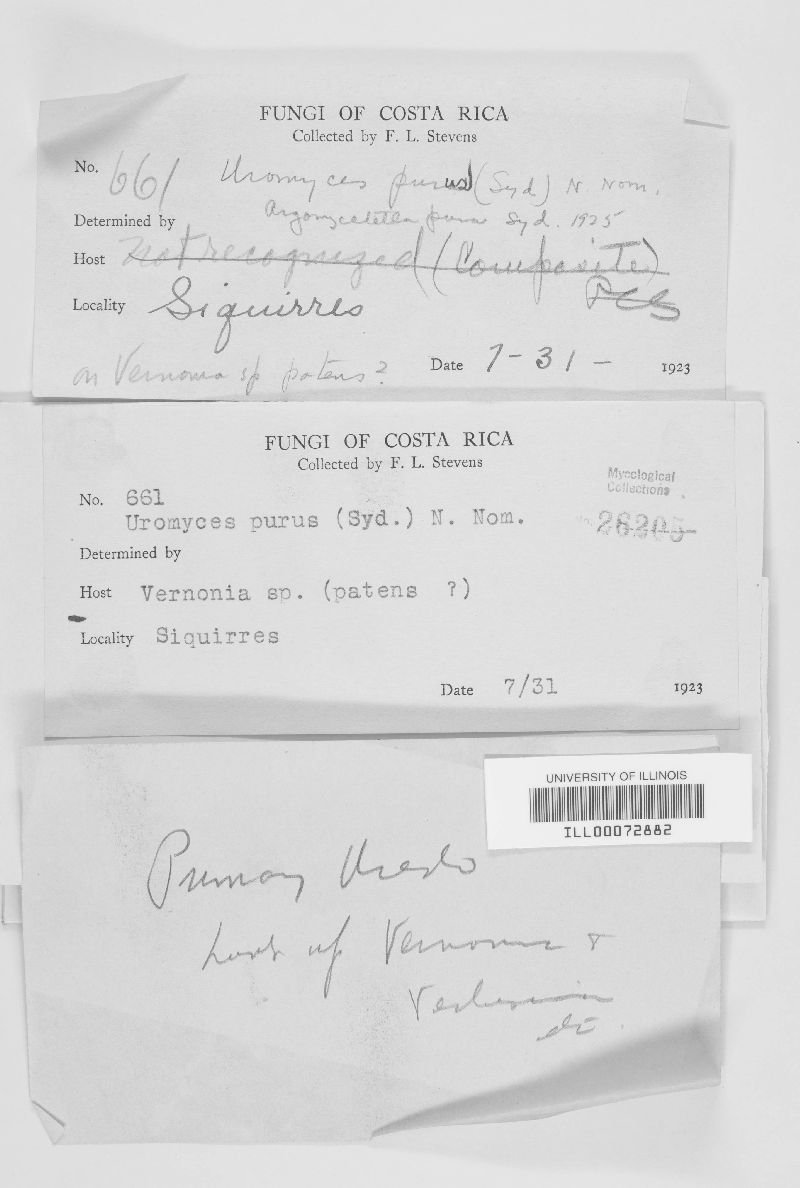 FUNGI OF COSTA RICA
Collected by F. L. Stevens
No. 661 Uromyces purus (Syd) N. Nom.
Determined by Argomycetella pura Syd. 1925
Host not recognized (Composite)
Locality Siquirres
on Vernonia sp patens? Date 7-31- 1923
FUNGI OF COSTA RICA
Collected by F. L. Stevens
Mycological
Collections
No. 661
Uromyces purus (Syd.) N. Nom.
26205
Determined by
Host Vernonia sp. (patens ?)
Locality Siquirres
Date 7/31 1923
UNIVERSITY OF ILLINOIS
ILL00072882
Primary Uredo
Look up Vernonia &
Verbesina
etc.